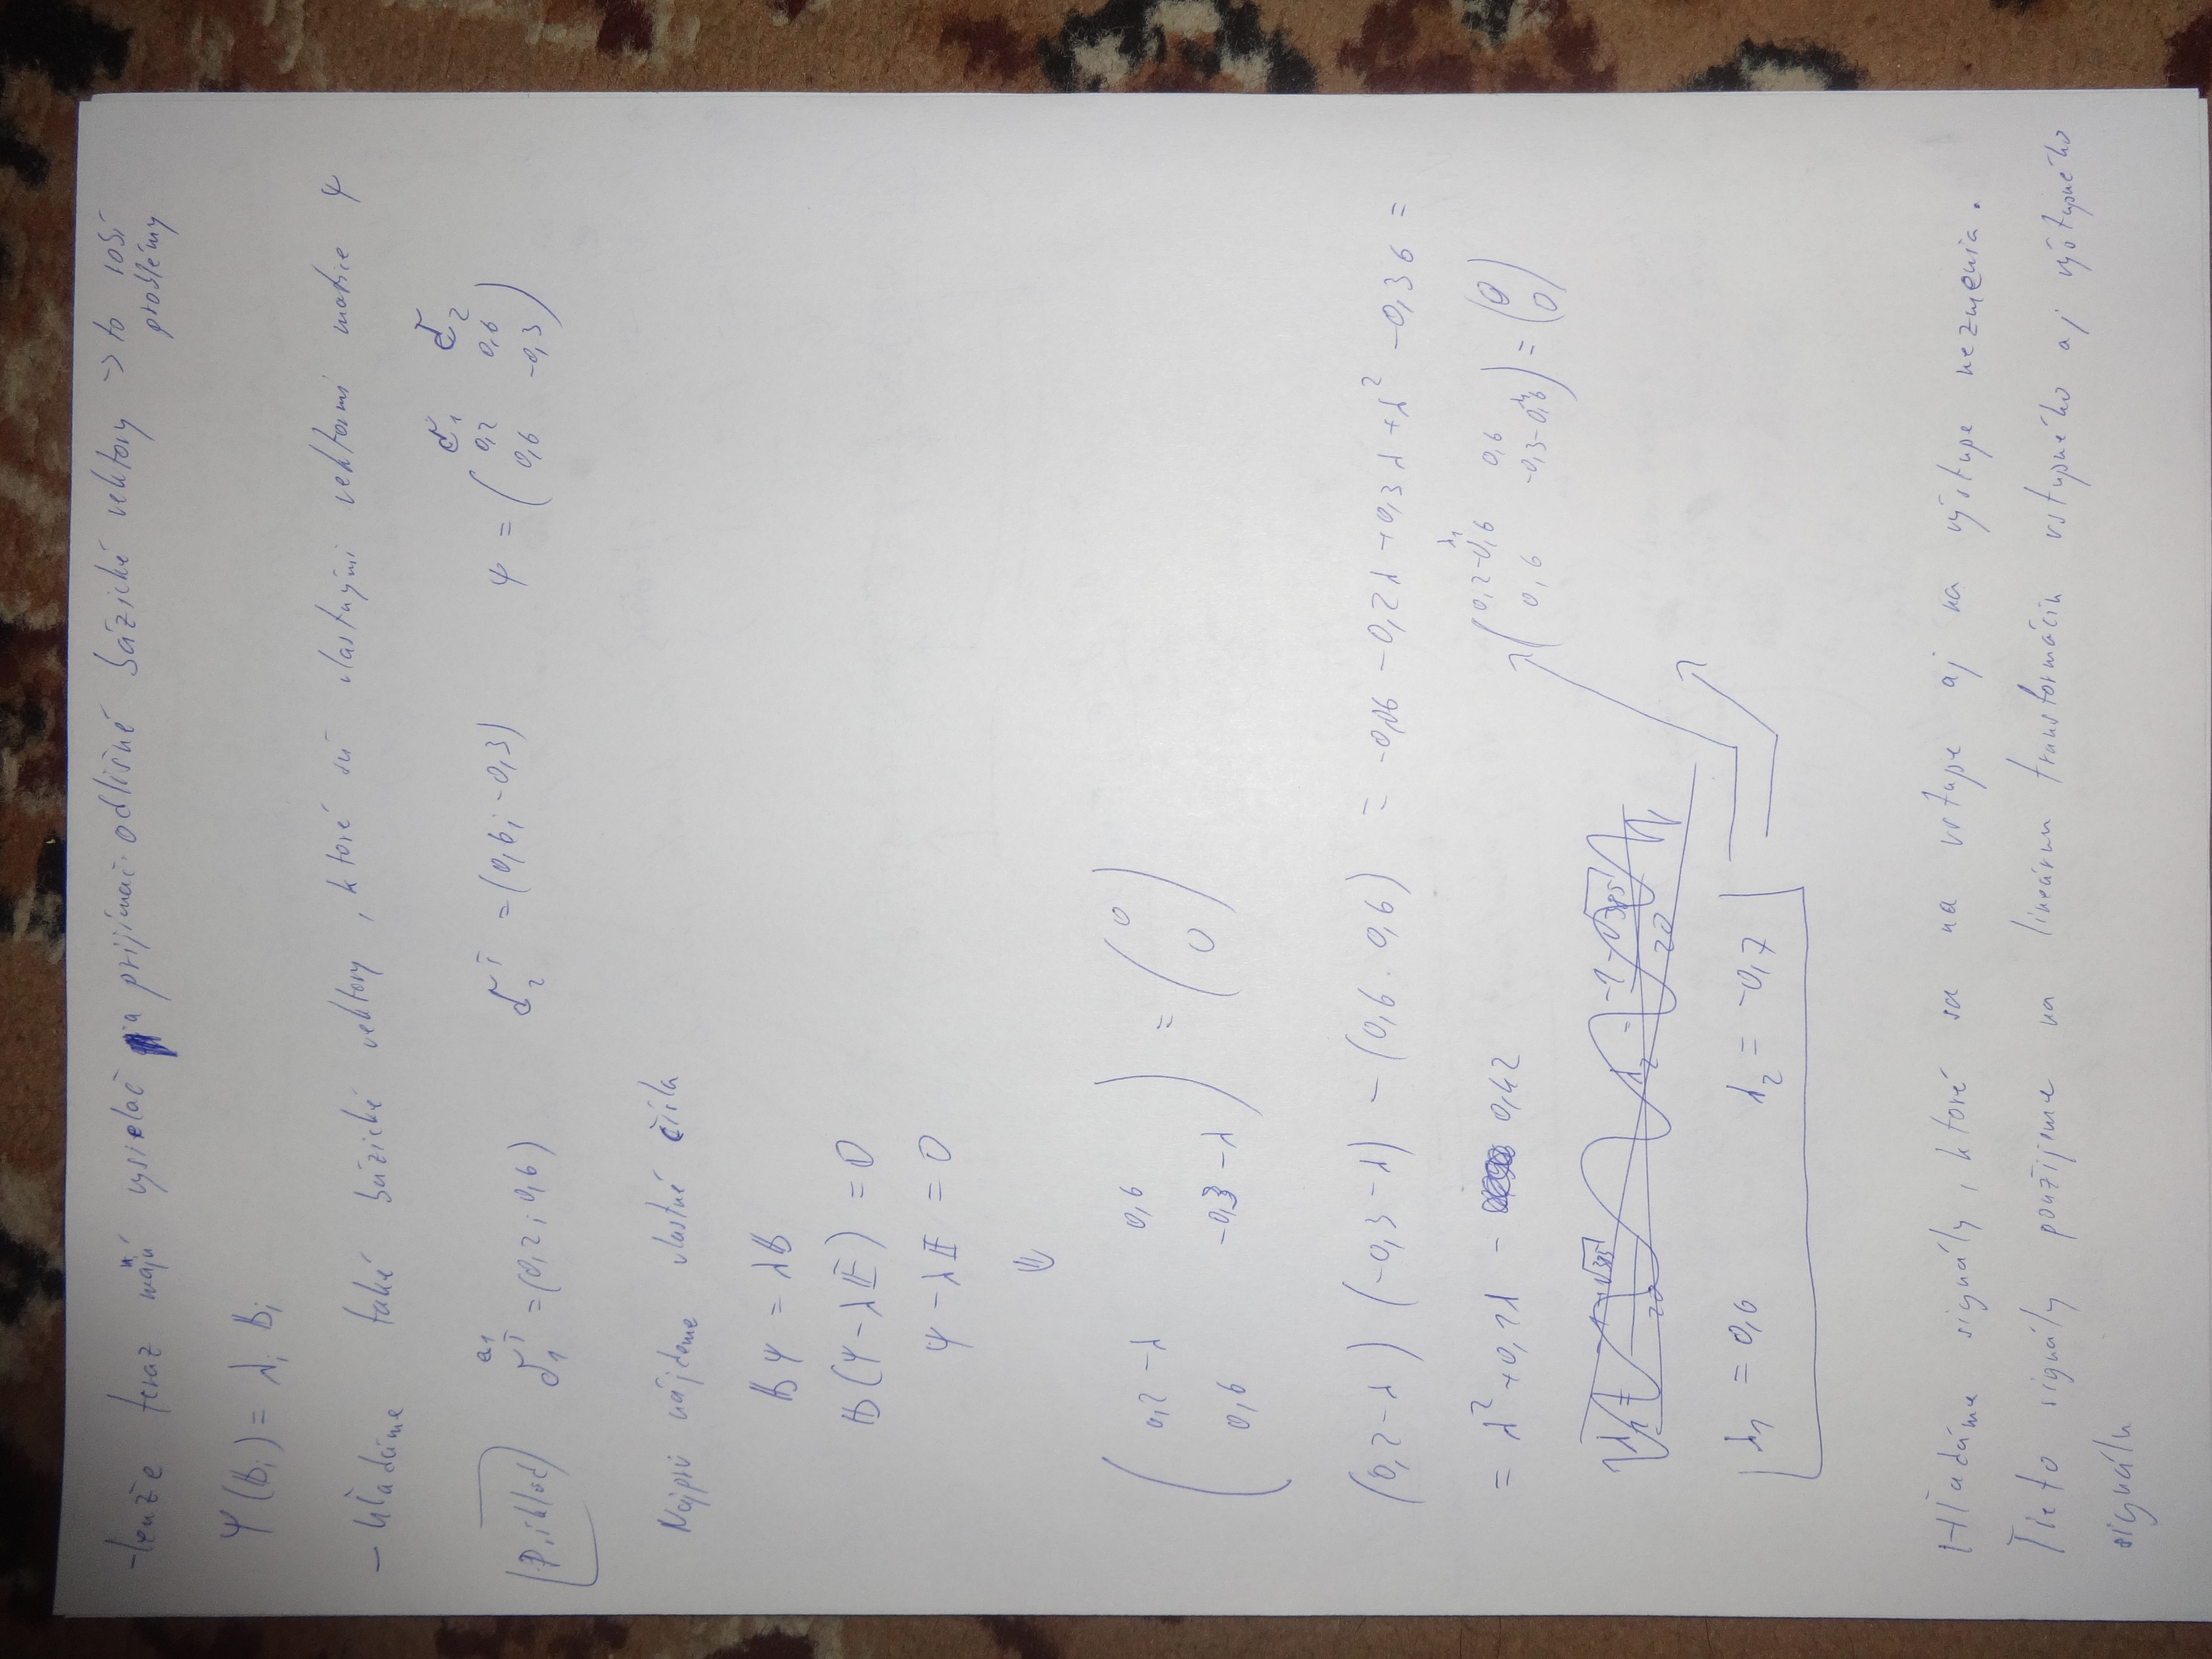 -lenže teraz majú vysielač a prijímač odlišné bázické vektory -> to robí
problémy
Ψ(Bi) = λi Bi
- hľadáme také bázické vektory, ktoré sú vlastnými vektormi matice Ψ
Príklad
a1
δ1^T = (0,2; 0,6) δ2^T = (0,6; -0,3) Ψ = (0,2 0,6
0,6 -0,3)
δ1 δ2
Najprv nájdeme vlastné čísla
B Ψ = λ B
B (Ψ - λE) = 0
Ψ - λE = 0
⇓
(0,2 - λ 0,6
0,6 -0,3 - λ) = (0
0)
(0,2 - λ) (-0,3 - λ) - (0,6 . 0,6) = -0,06 - 0,2λ + 0,3λ + λ² - 0,36 =
= λ² + 0,1λ - 0,42
λ1
(0,2 - 0,6 0,6
0,6 -0,3 - 0,6) = (0
0)
λ1 = 0,6 λ2 = -0,7
Hľadáme signály, ktoré sa na vstupe aj na výstupe nezmenia.
Tieto signály použijeme na lineárnu transformáciu vstupného aj výstupného
signálu